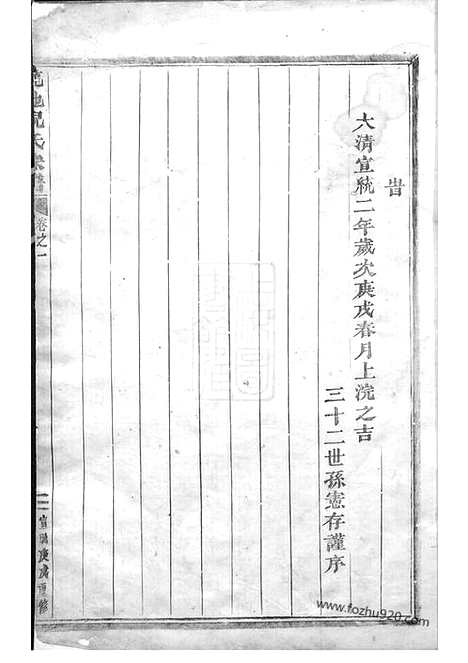 旹
大清宣統二年歲次庚戌春月上浣之吉
三十二世孫憲存謹序
氏
卷之一
宣統庚戌重修
www.fozhu920.com